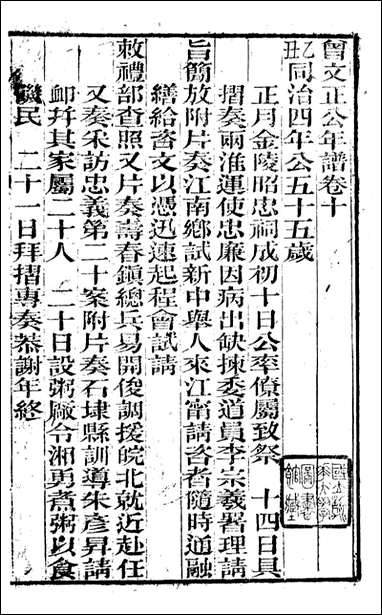 曾文正公年譜卷十
乙丑同治四年公五十五歲
正月金陵昭忠祠成初十日公率僚屬致祭　十四日具
摺奏兩淮運使忠廉因病出缺揀委道員李宗羲署理請
旨簡放附片奏江南鄉試新中舉人來江甯請咨者隨時通融
繕給咨文以憑迅速起程會試請
敕禮部查照又片奏壽春鎮總兵易開俊調援皖北就近赴任
又奏采訪忠義第二十案附片奏石埭縣訓導朱彥昇請
卹并其家屬二十人　二十日設粥廠令湘勇煮粥以食
饑民　二十一日拜摺專奏恭謝年終